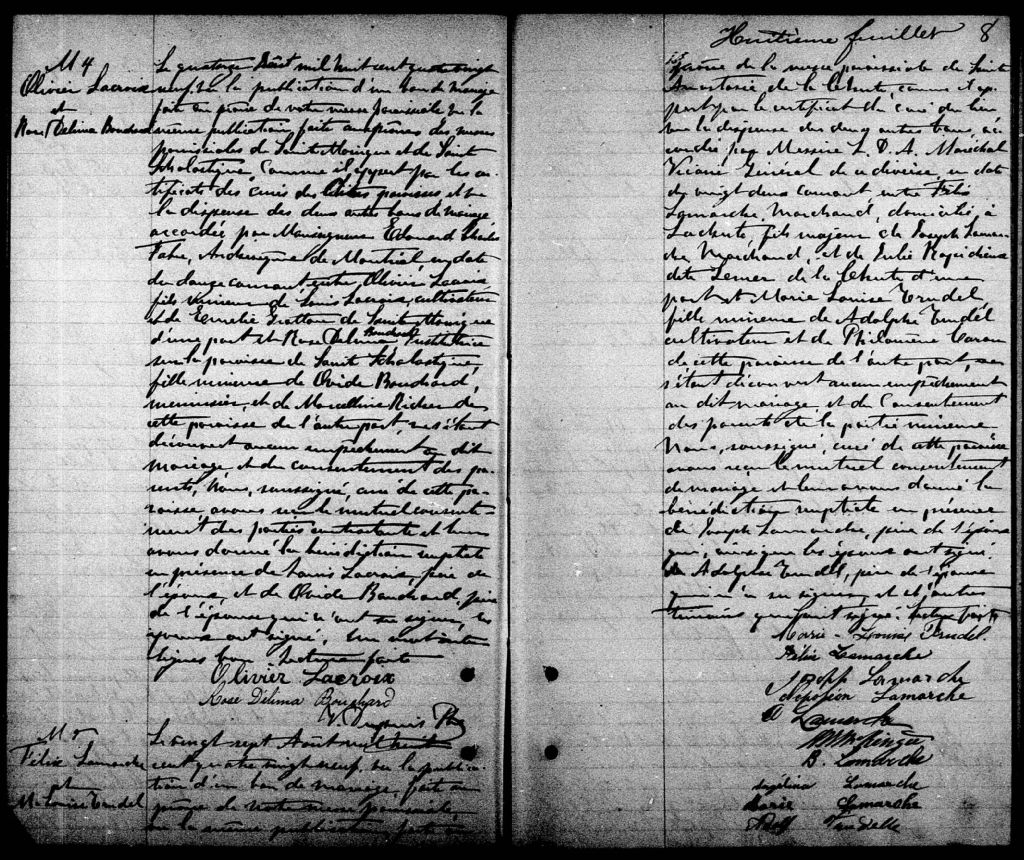 M 4
Olivier Lacroix
et
Rose Delima Bouchard
Le quatorze Août mil huit cent quatre vingt
neuf, vu la publication d'un ban de mariage
fait au prône de notre messe paroissiale vu la
même publication faite aux prônes des messes
paroissiales de Sainte Monique et de Sainte
Scholastique, comme il appert par les cer-
tificats des curés des dites paroisses et vu
la dispense des deux autres bans de mariage
accordée par Monseigneur Edouard Charles
Fabre, Archevêque de Montréal en date
du douze courant entre Olivier Lacroix
fils mineur de Louis Lacroix, cultivateur
et de Emelie Gratton de Sainte Monique
d'une part et Rose Delima Bouchard
sur la paroisse de Sainte Scholastique,
fille mineure de Ovide Bouchard,
menuisier, et de Marcelline Richer de
cette paroisse de l'autre part, ne s'étant
découvert aucun empêchement au dit
mariage et du consentement des pa-
rents, Nous, soussigné, curé de cette pa-
roisse avons reçu le mutuel consente-
ment des parties contractantes et leur
avons donné la bénédiction nuptiale
en présence de Louis Lacroix, père de
l'époux, et de Ovide Bouchard, père
de l'épouse qui n'ont su signer, les
époux ont signé.
lignes bon. Lecture faite
Olivier Lacroix
Rose Délima Bouchard
M 5
Félix Lamarche
et
M. Louise Trudel
Le vingt sept Août mil huit
cent quatre vingt neuf, vu la publica-
tion d'un ban de mariage, fait au
prône de notre messe paroissiale,
vu la même publication faite au
Huitième feuillet 8
prône de la messe paroissiale de Sainte
Anastasie de la Chute, comme il ap-
pert par le certificat du curé du lieu
vu la dispense des deux autres bans, ac-
cordée par Messire L. D. A. Maréchal
Vicaire Général de ce diocèse, en date
du vingt deux courant entre Félix
Lamarche, Marchand, domicilié à
Lachute, fils majeur de Joseph Lamar-
che, Marchand, et de Julie
de la Chute d'une
part et Marie Louise Trudel,
fille mineure de Adolphe Trudel
cultivateur et de Philomène Caron
de cette paroisse de l'autre part, ne
s'étant découvert aucun empêchement
au dit mariage, et du Consentement
des parents de la partie mineure
Nous, soussigné, curé de cette paroisse
avons reçu le mutuel consentement
de mariage et leur avons donné la
bénédiction nuptiale en présence
de Joseph Lamarche, père de l'époux
qui, ainsi que les époux ont signé,
de Adolphe Trudel, père de l'épouse
qui n'a su signer, et d'autres
témoins qui ont signé. Lecture faite
Marie-Louise Trudel
Félix Lamarche
Lamarche
Lamarche
Lamarche
B. Lamarche
Angélina Lamarche
Marie Lamarche